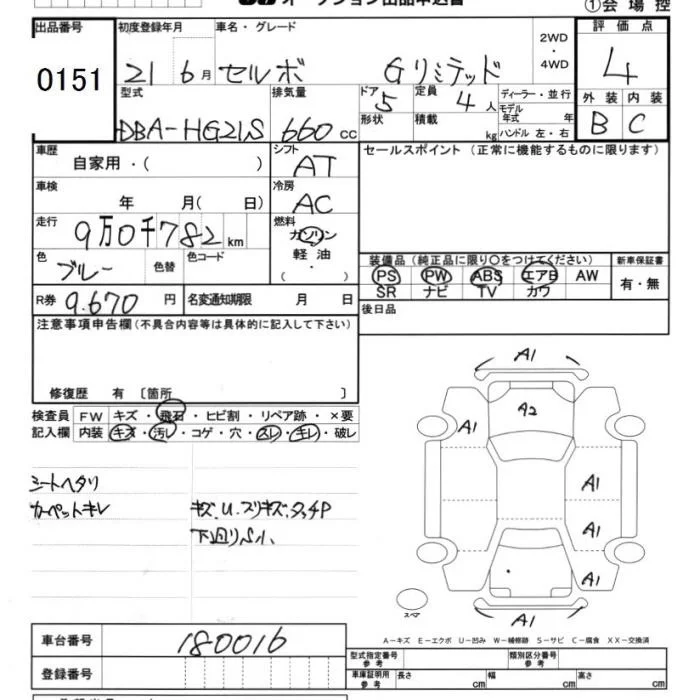 オークション出品申込書
①会場控
出品番号 初度登録年月 車名・グレード 2WD・4WD 評価点
0151 21 6月 セルボ Gリミテッド 4
型式 排気量 ドア 定員 ディーラー・並行 外装 内装
DBA-HG21S 660cc 5 4人 モデル年式 年 B C
形状 積載 kg ハンドル 左・右
車歴 シフト セールスポイント(正常に機能するものに限ります)
自家用・( ) AT
車検 冷房
年 月( 日) AC
走行 燃料
9万0千782km ガソリン
軽油
( ・ )
色 色替 色コード
ブルー
装備品(純正品に限り○をつけてください) 新車保証書
PS PW ABS エアB AW 有・無
SR ナビ TV カワ
R券 9.670円 名変通知期限 月 日
後日品
注意事項申告欄(不具合内容等は具体的に記入して下さい)
修復歴 有 〔箇所 〕
検査員 FW キズ・飛石・ヒビ割・リペア跡・×要
記入欄 内装 キズ・汚レ・コゲ・穴・スレ・キレ・破レ
シートヘタリ
カーペットキレ キズ.U.スリキズ.タッチP
下廻りS小、
A1
A2
A1
A1
A1
A1
A1
スペア
A-キズ E-エクボ U-凹み W-補修跡 S-サビ C-腐食 XX-交換済
車台番号 180016
登録番号
型式指定番号 参考 類別区分番号 参考
車庫証明用 参考 長さ cm 幅 cm 高さ cm